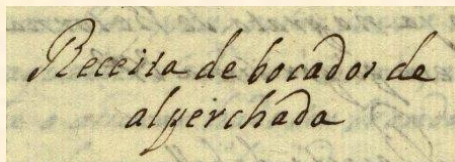 Receita de bocados de
alperchada